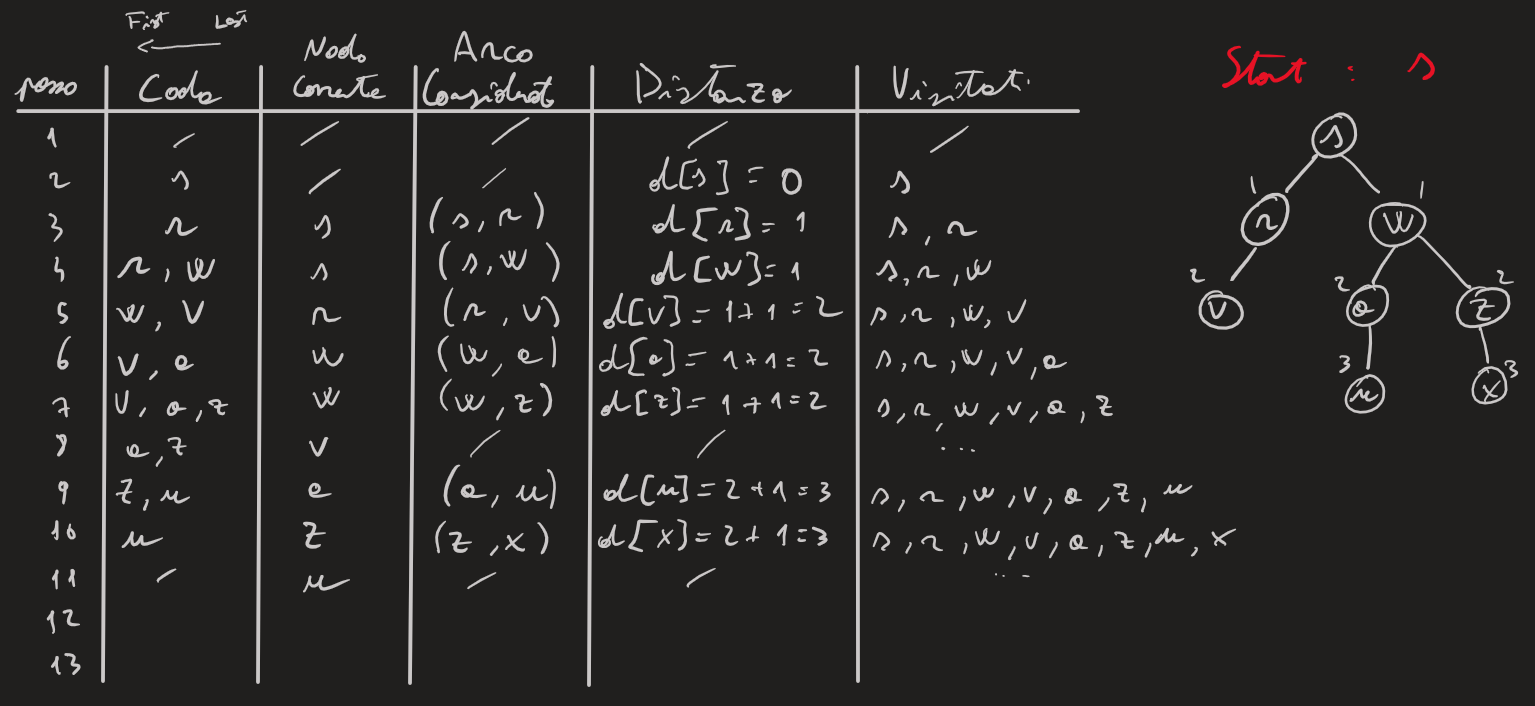 First Last
passo Coda Nodo Corrente Arco Considerato Distanza Visitati
1 / / / / /
2 s / / d[s] = 0 s
3 r s (s, r) d[r] = 1 s, r
4 r, w s (s, w) d[w] = 1 s, r, w
5 w, v r (r, v) d[v] = 1+1=2 s, r, w, v
6 v, a w (w, a) d[a] = 1+1=2 s, r, w, v, a
7 v, a, z w (w, z) d[z] = 1+1=2 s, r, w, v, a, z
8 a, z v / / ...
9 z, u a (a, u) d[u] = 2+1=3 s, r, w, v, a, z, u
10 u z (z, x) d[x] = 2+1=3 s, r, w, v, a, z, u, x
11 / u / / ...
12
13
Start : s
s
1 r 1 w
2 v 2 a 2 z
3 u 3 x